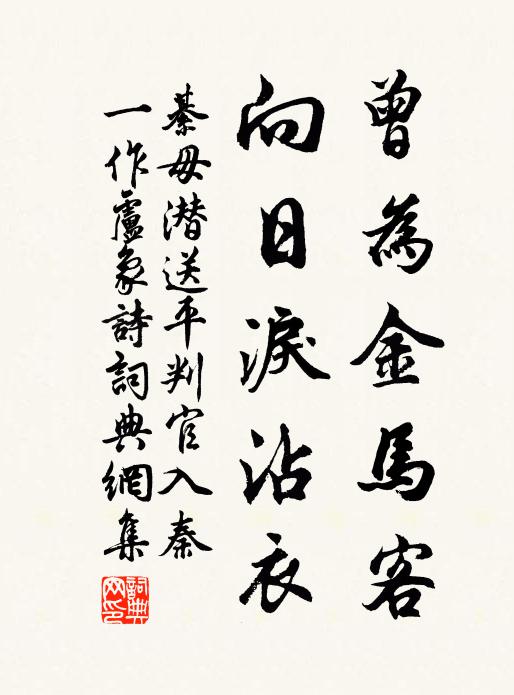 曾為金馬客
向日淚沾衣
綦毋潛送平判官入秦
一作盧象詩詞典網集
詞典网印